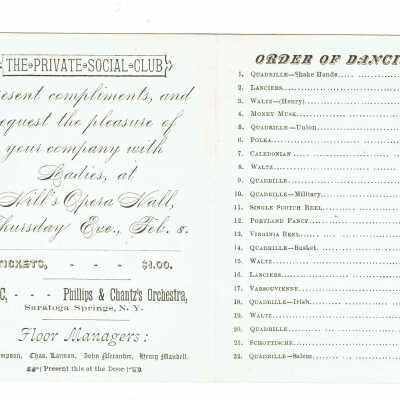 THE PRIVATE SOCIAL CLUB
resent compliments, and
equest the pleasure of
your company with
Ladies, at
Hill's Opera Hall,
hursday Eve., Feb. 8.
TICKETS, - - - $1.00.
C, - - - Phillips & Chantz's Orchestra,
Saratoga Springs, N. Y.
Floor Managers:
mpson, Chas. Lannon, John Alexander, Henry Mandell.
(Present this at the Door.)
ORDER OF DANCI
1. QUADRILLE—Shake Hands
2. LANCIERS
3. WALTZ—(Henry)
4. MONEY MUSK
5. QUADRILLE—Union
6. POLKA
7. CALEDONIAN
8. WALTZ
9. QUADRILLE
10. QUADRILLE—Military
11. SINGLE SCOTCH REEL
12. PORTLAND FANCY
13. VIRGINIA REEL
14. QUADRILLE—Basket
15. WALTZ
16. LANCIERS
17. VARSOUVIENNE
18. QUADRILLE—Irish
19. WALTZ
20. QUADRILLE
21. SCHOTTISCHE
22. QUADRILLE—Salem